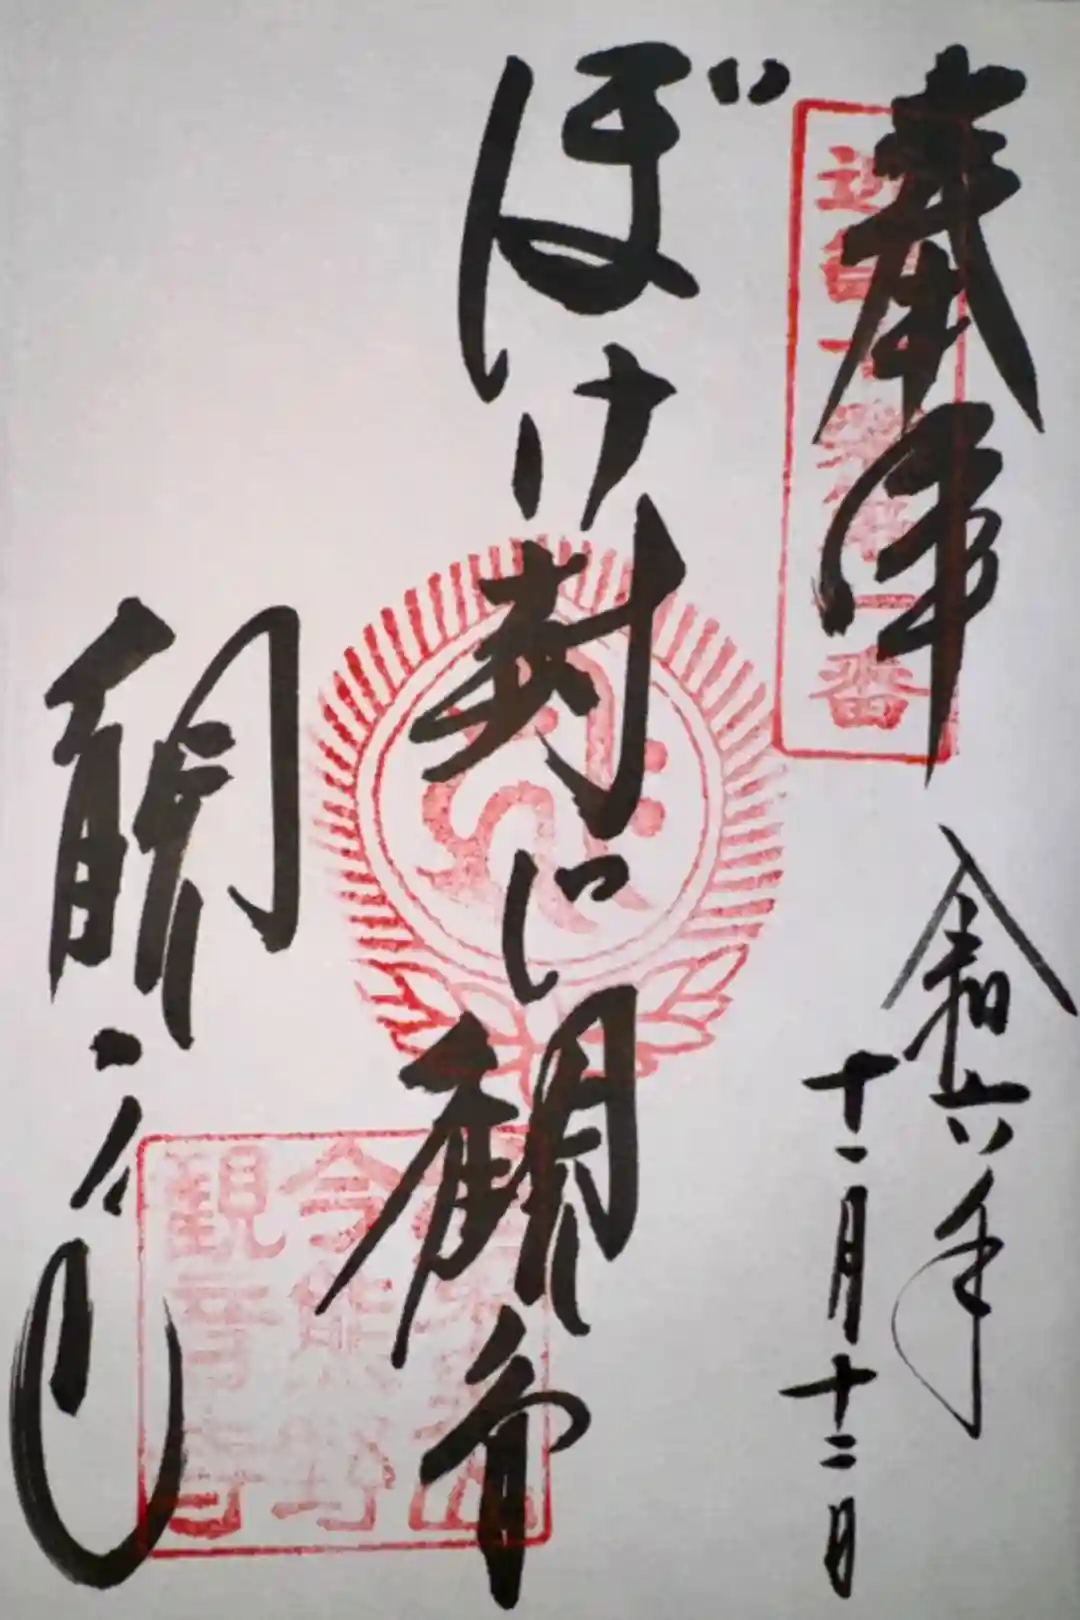 奉拝
近畿十楽第一番
令和六年
十一月十二日
ぼけ封じ観音
観音寺
今熊野
観音寺